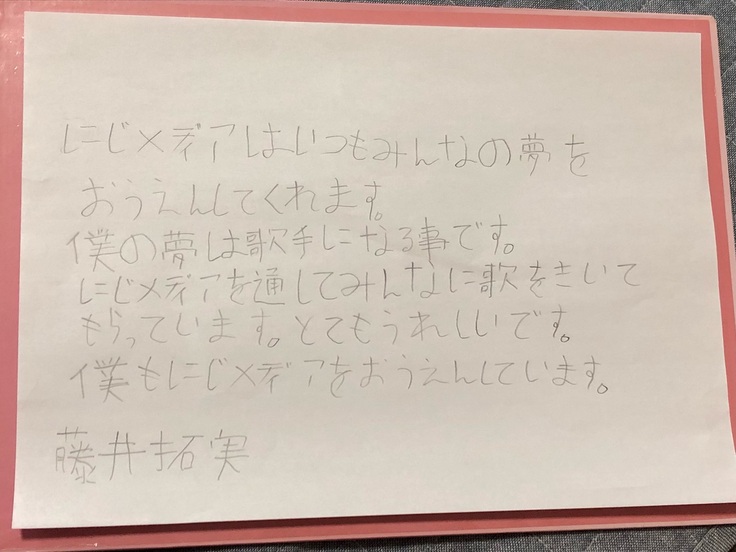 にじメディアはいつもみんなの夢を
おうえんしてくれます。
僕の夢は歌手になる事です。
にじメディアを通してみんなに歌をきいて
もらっています。とてもうれしいです。
僕もにじメディアをおうえんしています。
藤井拓実